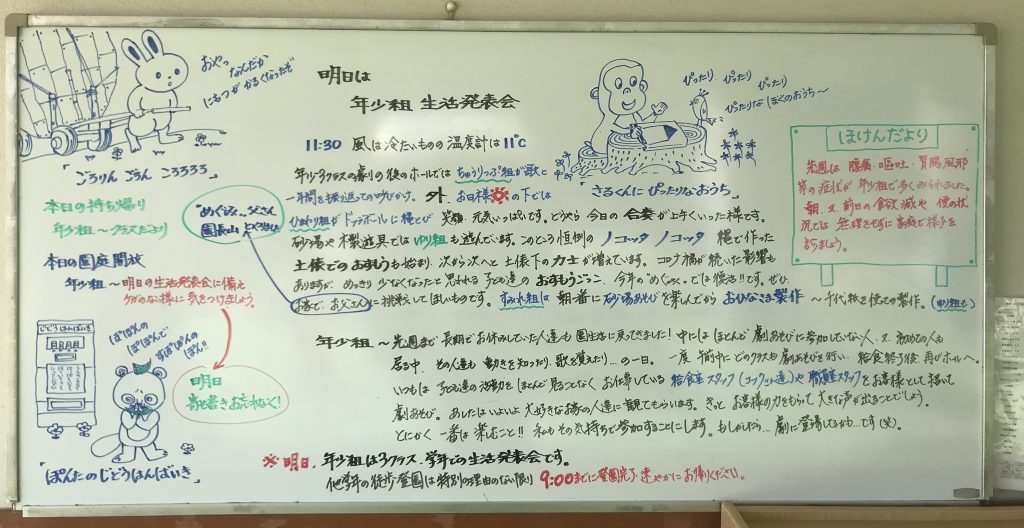 おやっ なんだか
にもつが かるくなったぞ
「ごろりん ごろん ころろろろ」
明日は
年少組 生活発表会
ぴったり、ぴったり、ぴったり
ぴったりな ぼくのおうち〜
「さるくんに ぴったりなおうち」
ほけんだより
先週は 腹痛・嘔吐・胃腸風邪
等の症状が 年少組で多くみられました。
朝、又 前日の食欲減や 便の状
況では 無理をせずに 家庭で様子を
みましょう。
本日の持ち帰り
年少組〜クラスだより
本日の園庭開放
年少組〜明日の生活発表会に備え
ケガのない様に 気をつけましょう。
"めぐみ山"父さん
園長山
11:30 風は冷たいものの 温度計は11℃
年少3クラスの 劇の後のホールでは ちゅうりっぷ組が歌と
一年間を振り返っての呼びかけ。外、お日様の下では
ひまわり組が ドッヂボールに縄とび 笑顔・元気いっぱいです。どうやら 今日の合奏が上手くいった様です。
砂場や 木製遊具では ゆり組も 遊んでいます。このところ恒例の ノコッタ ノコッタ 縄で作った
土俵でのおすもうも始まり、次から次へと 土俵下の力士が増えています。コロナ禍が続いた影響も
ありますが、めっきり 少なくなったと 思われる 子ども達の おすもうごっこ、今年の"めぐみ"では復活!!です。ぜひ
揃って、お父さんに挑戦してほしいものです。すみれ組は 朝一番に 砂場あそびを楽しんでから おひなさま製作 〜千代紙を使っての製作。(ゆり組も)
年少組〜先週まで 長期でお休みしていた人達も 園生活に戻ってきました! 中には ほとんど 劇あそびに参加していない人、又、初めての人も
居る中、その人達も 動きを知ったり 歌を覚えたり…の一日。一度 午前中に どのクラスも 劇あそびを行い、給食終了後 再びホールへ。
いつもは 子ども達の活動を ほとんど 見ることなく お仕事している 給食室スタッフ(コックさん達)や 職員スタッフをお客として 招いて
劇あそび。あしたは いよいよ 大好きなお家の人達に 観てもらいます。きっと お客様の力をもらって 大きな声が出ることでしょう。
とにかく 一番は 楽しむこと!! 私もその気持ちで参加することにします。もしかしたら… 劇に登場してるかも…です(笑)。
じどうはんばいき
ぽぽんの
ぽぽんで
すぽぽんの
ぽん!!
明日
寄せ書きお忘れなく!
「ぽんたのじどうはんばいき」
※明日、年少組は3クラス、学年での生活発表会です。
他学年の徒歩登園は 特別の理由のない限り 9:00までに登園完了・速やかにお帰りください。